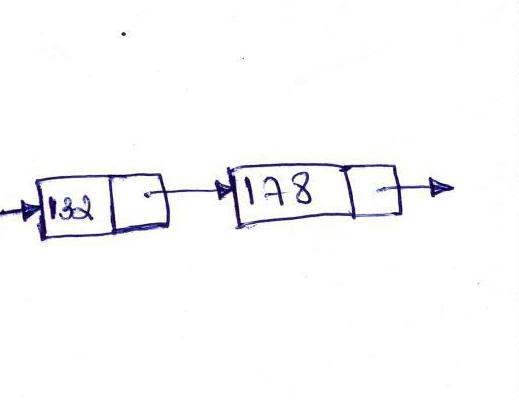 132 178